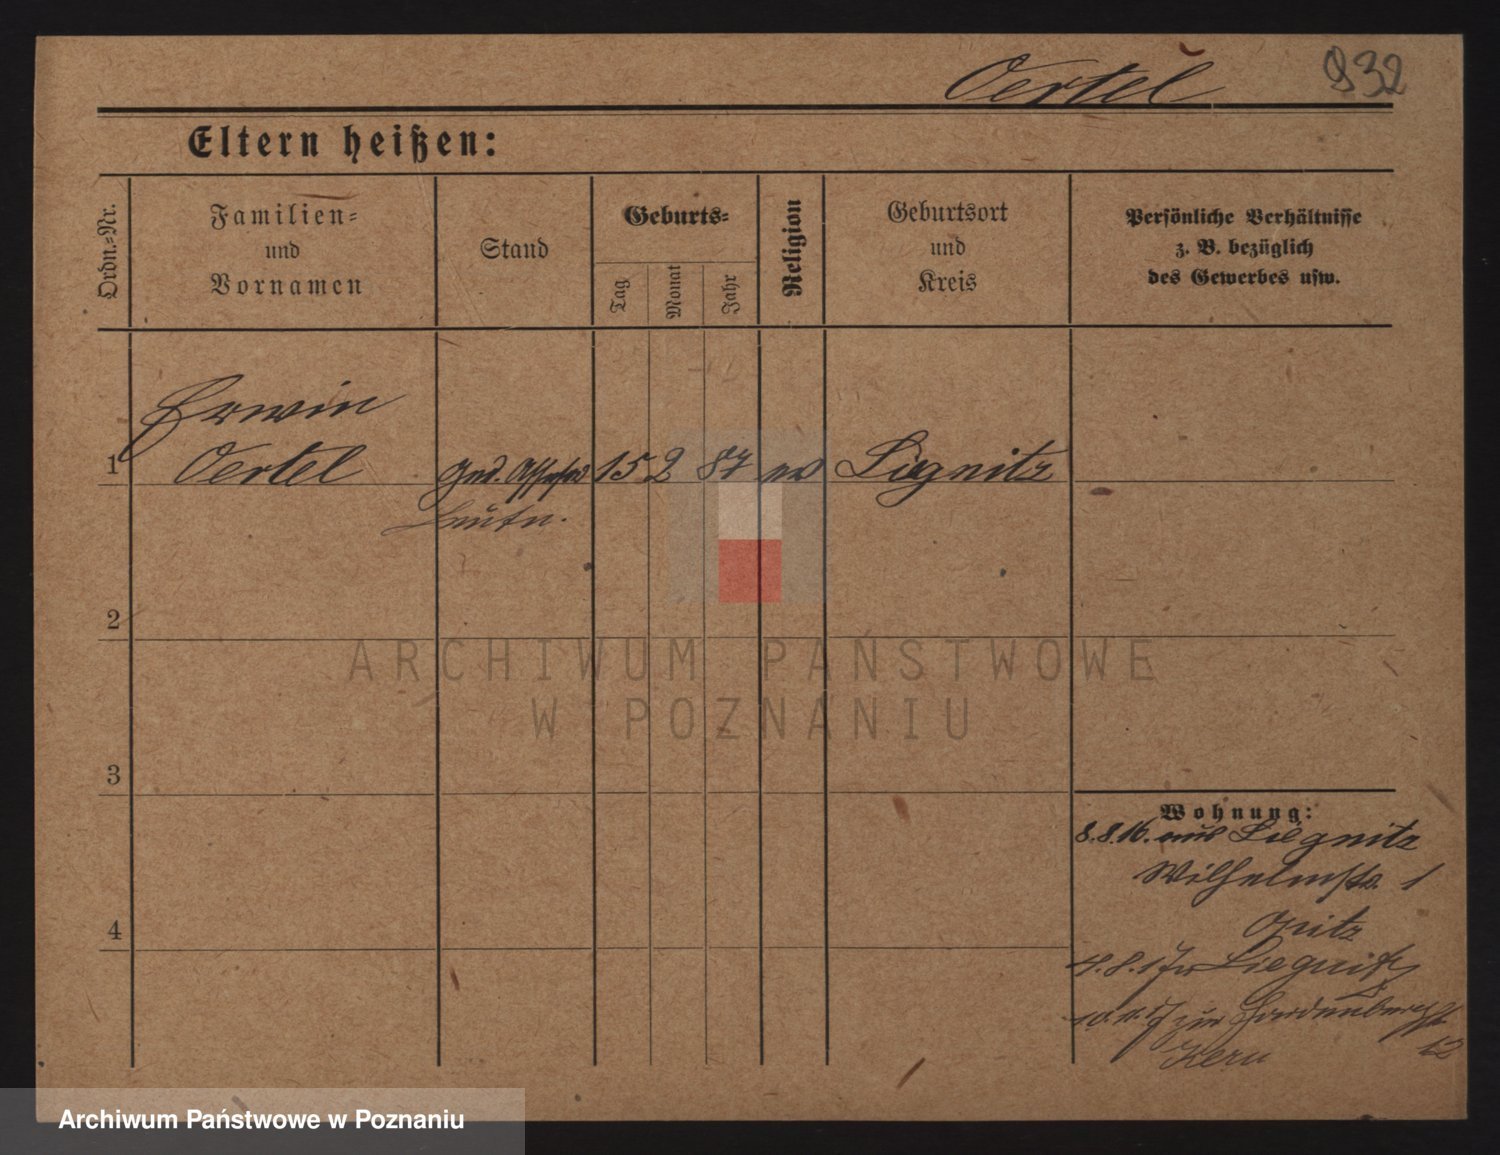 Oertel 932
Eltern heißen:
Ordn.-Nr.
Familien-
und
Vornamen
Stand
Geburts-
Tag
Monat
Jahr
Religion
Geburtsort
und
Kreis
Persönliche Verhältnisse
z. B. bezüglich
des Gewerbes usw.
Erwin
1 Oertel 15 2 87 ev Liegnitz
Leutn.
2
3
4
Wohnung:
8.8.16. aus Liegnitz
Wilhelmstr. 1
Opitz
4.8.17 Liegnitz
zur Hardenbergstr
12
Kern
ARCHIWUM PAŃSTWOWE
W POZNANIU
Archiwum Państwowe w Poznaniu